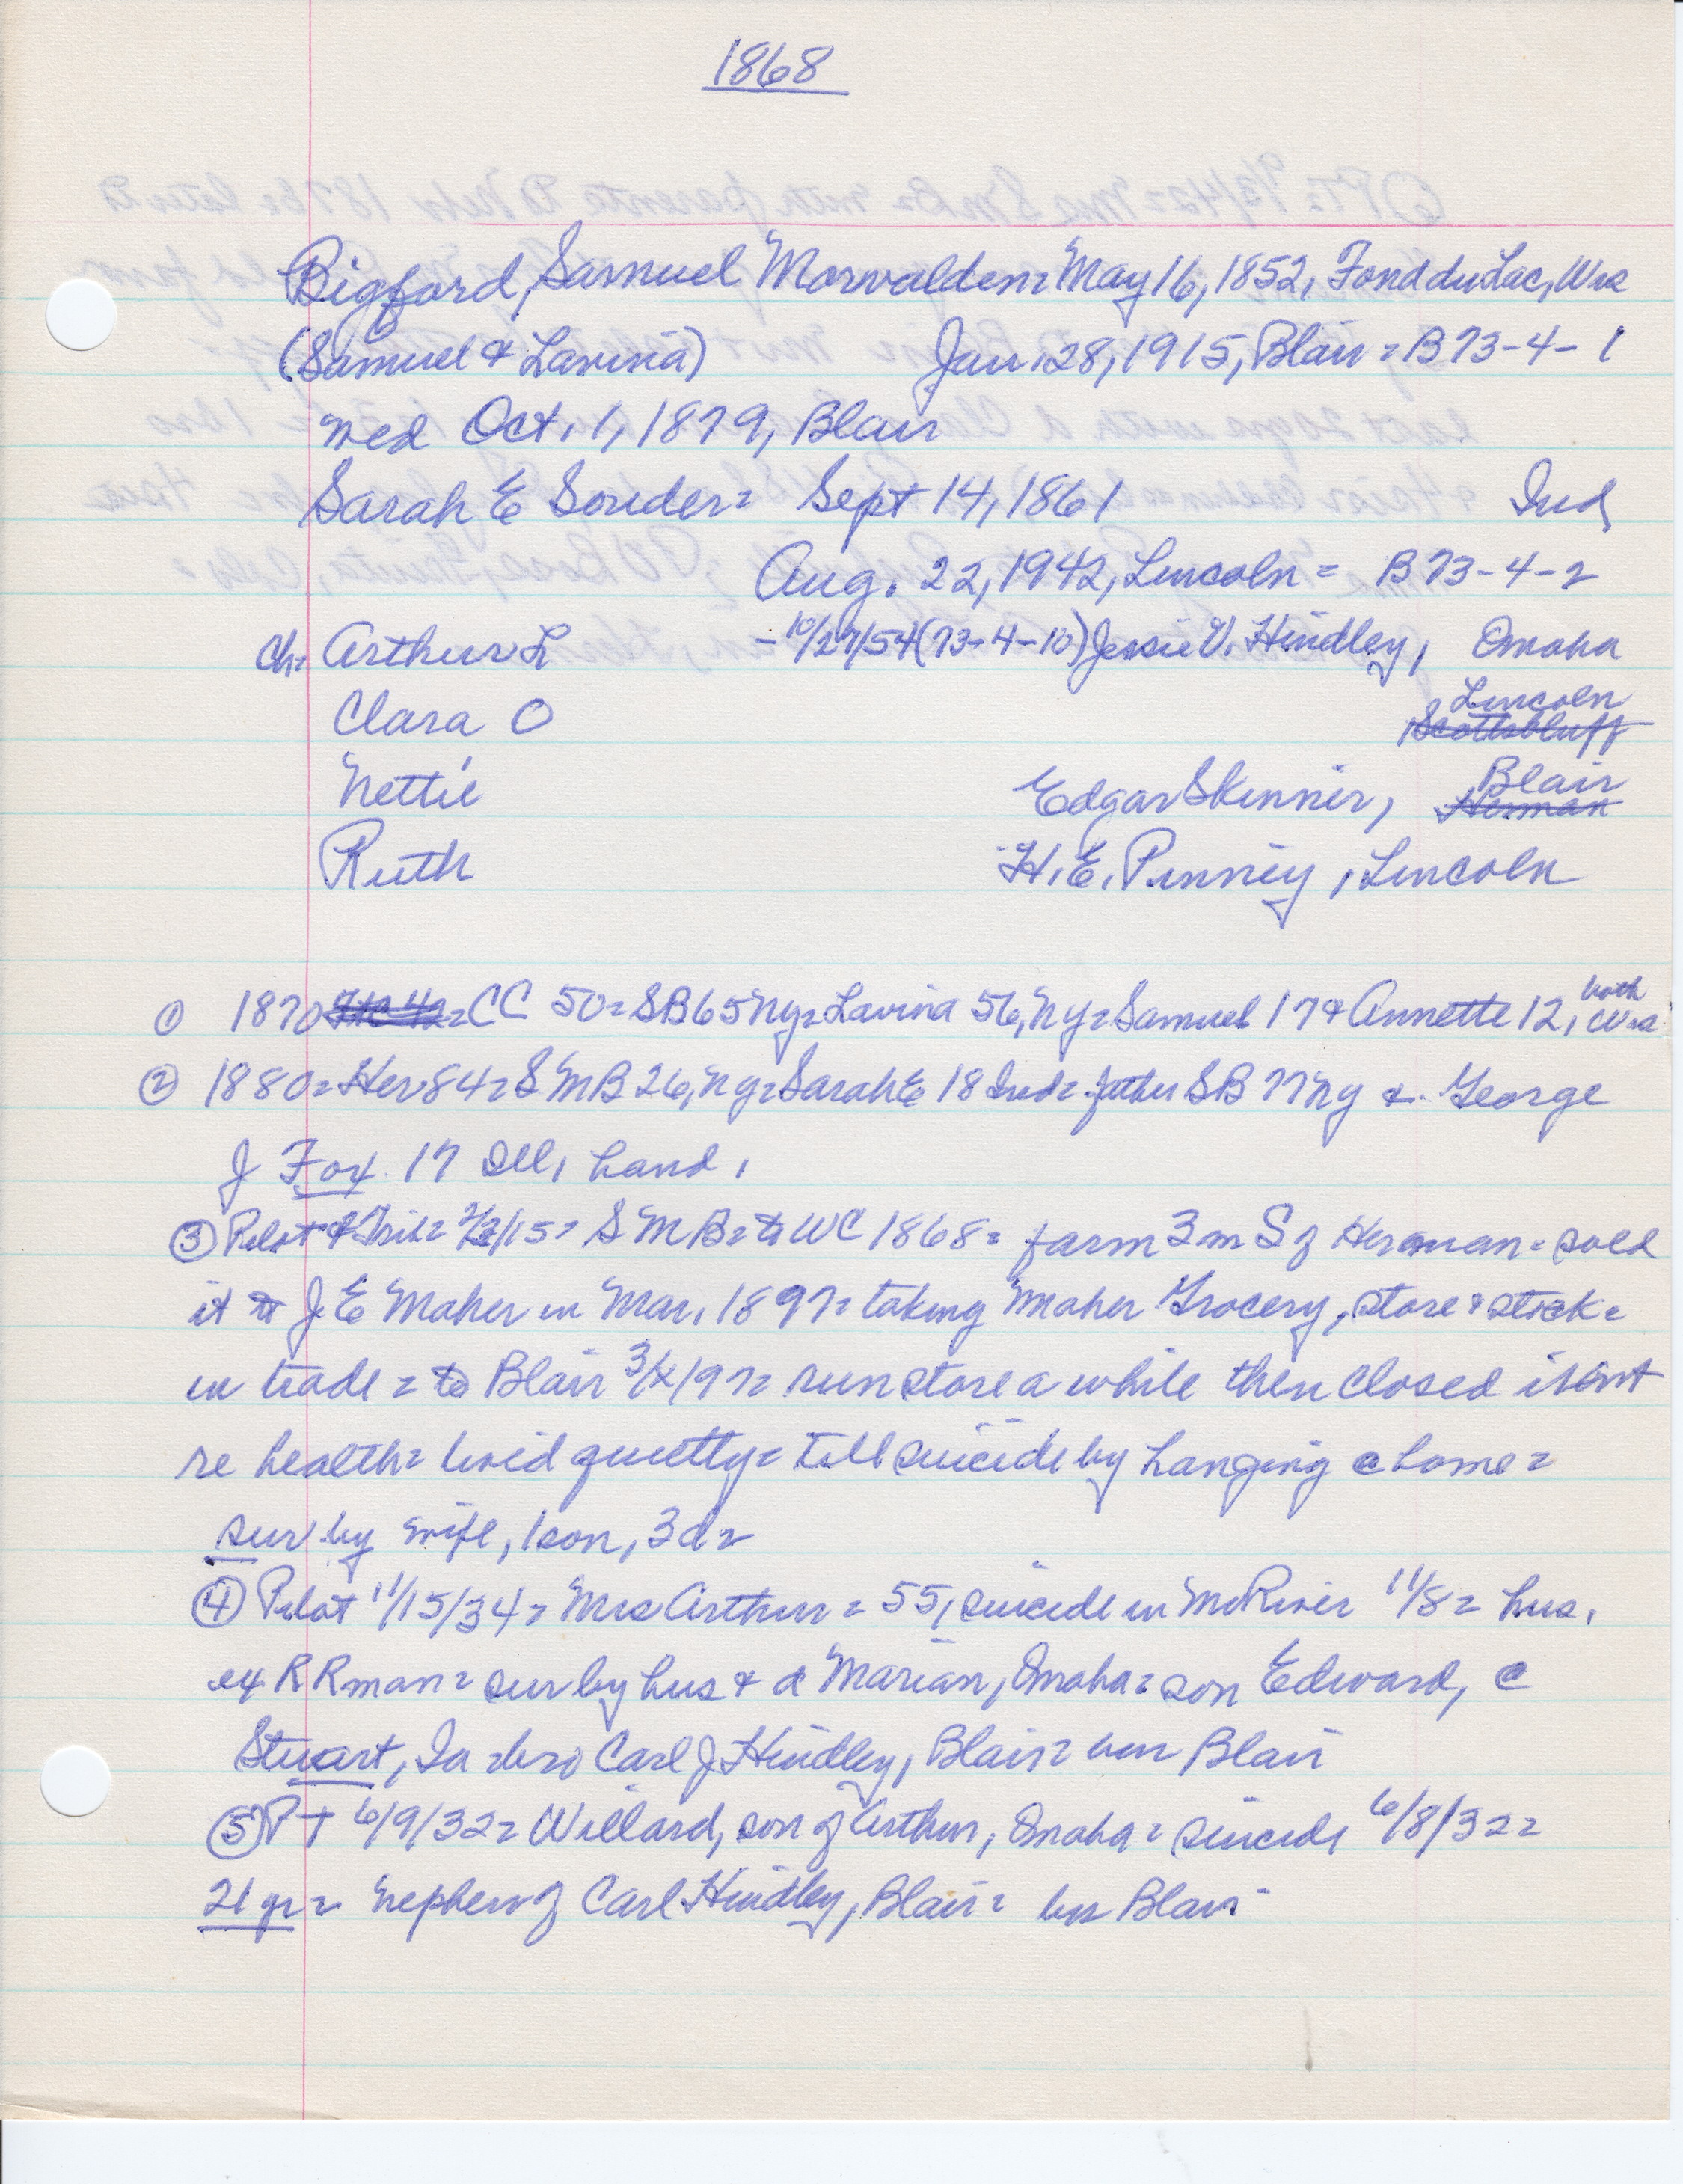 1868
Bigford, Samuel Morvalden = May 16, 1852, Fond du Lac, Wis
(Samuel & Lavina) Jan. 28, 1915, Blair = B73-4-1
med Oct. 1, 1879, Blair
Sarah E Souder = Sept 14, 1861 Ind
Aug. 22, 1942, Lincoln = B73-4-2
Ch: Arthur L - 10/27/54 (73-4-10) Jessie V. Hindley, Omaha
Clara O Lincoln Scottsbluff
Nettie Edgar Skinner, Blair Herman
Ruth H.E. Pinney, Lincoln
① 1870 = CC 50 = SB 65 NY = Lavina 56, NY = Samuel 17 & Annette 12, both Wis
② 1880 = Her 84 = SMB 26, NY = Sarah E 18 Ind = father SB 77 NY & George
J Fox 17 Ill, hand.
③ Pilot & Trib = 2/3/15 = SMB = to WC 1868 = farm 3 m S of Herman = sold
it to J E Maher in Mar, 1897 = taking Maher Grocery, store & stock =
in trade = to Blair 3/ /97 = run store a while then closed it out
re health = lived quietly = till suicide by hanging @ home =
sur by wife, 1 son, 3 d =
④ Pilot 11/15/34 = Mrs Arthur = 55, suicide in Mo River 11/8 = hus,
ex RR man = sur by hus & d Marian, Omaha = son Edward, @
Stuart, Ia = bro Carl J Hindley, Blair = bur Blair
⑤ PT 6/9/32 = Willard, son of Arthur, Omaha = suicide 6/8/32 =
21 yr = nephew of Carl Hindley, Blair = bur Blair